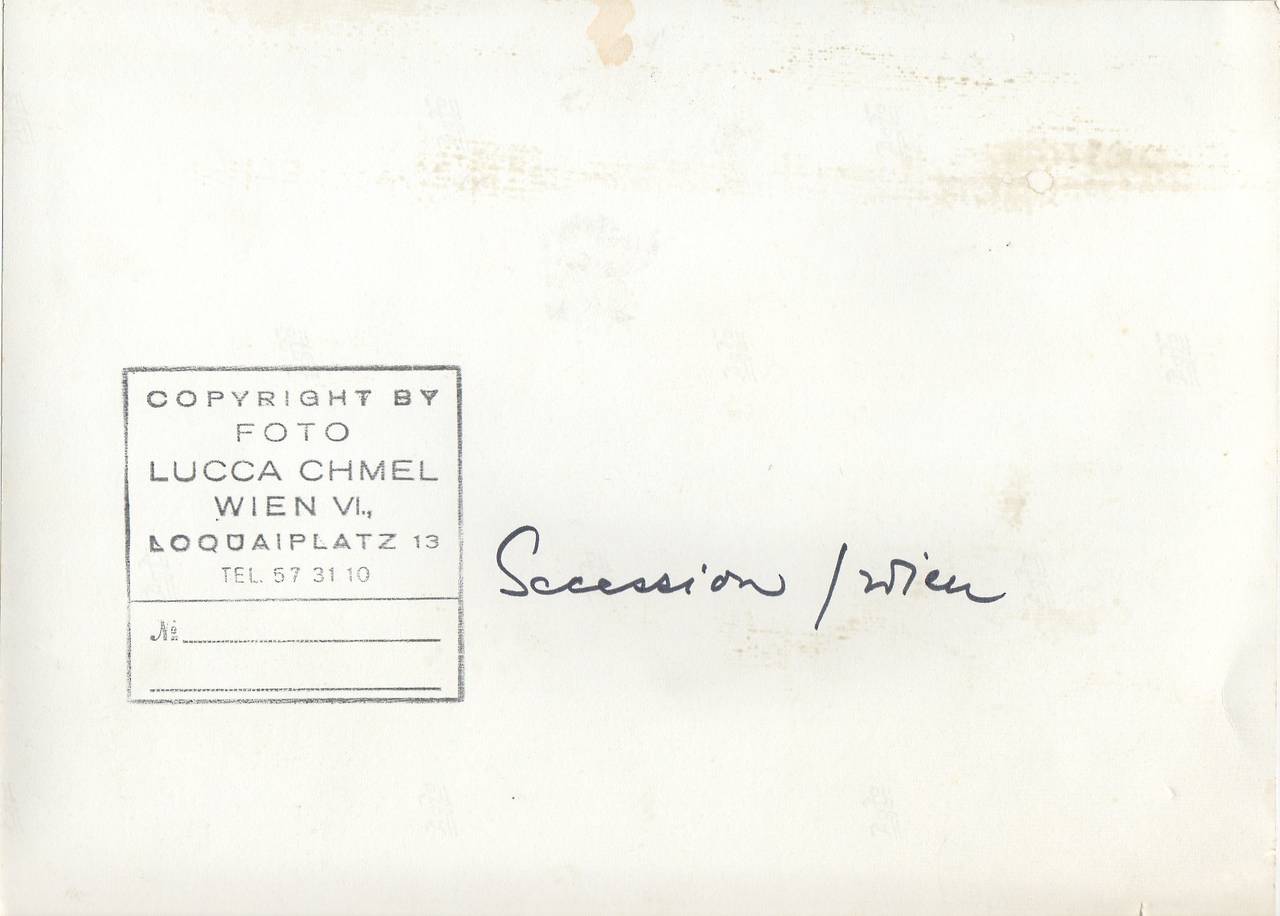 COPYRIGHT BY
FOTO
LUCCA CHMEL
WIEN VI.,
LOQUAIPLATZ 13
TEL. 57 31 10
№
Secession / Wien